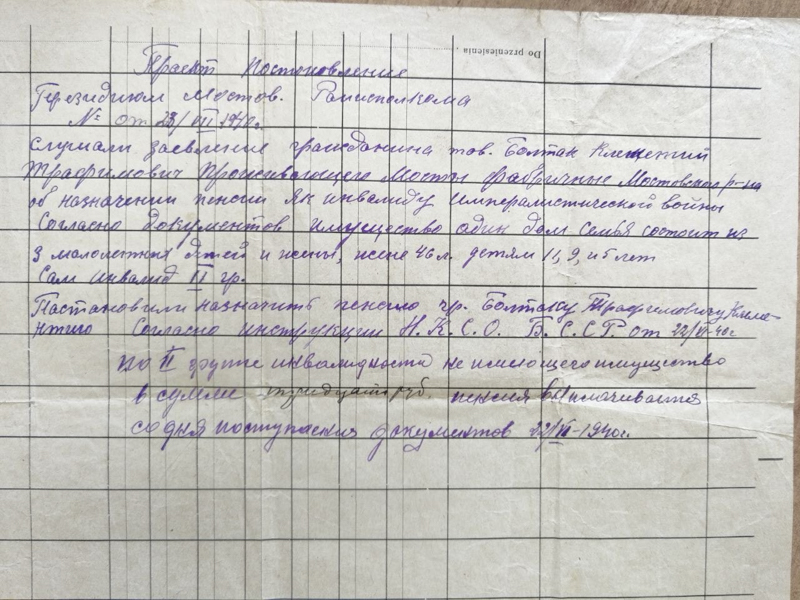 Do przeniesienia
Проект постоновление
Президиюм Мостов. Раисполкома
№ от 23/VII 1940г.
слушали заевление гражданина тов. Болтак Клеметий
Трафимович Произивающего Мосты фабричные Мостовского р-на
об назначении пенсии як инвалиду империалистической войны
Согласно документов имущество один дом семья состоит из
3 малолетних детей и жены, жене 46 л. детям 11, 9, и 5 лет
Сам инвалид II гр.
Пастановили назначить пенсию гр. Болтаку Трафимовичу Клеме-
нтию Согласно инструкции Н.К.С.О. Б.С.С.Р. от 22/VI-40г
по II группе инвалидности не имеющего имущество
в сумме тридцать руб. пенсия выплачивается
со дня поступления документов 22/VI-1940г.